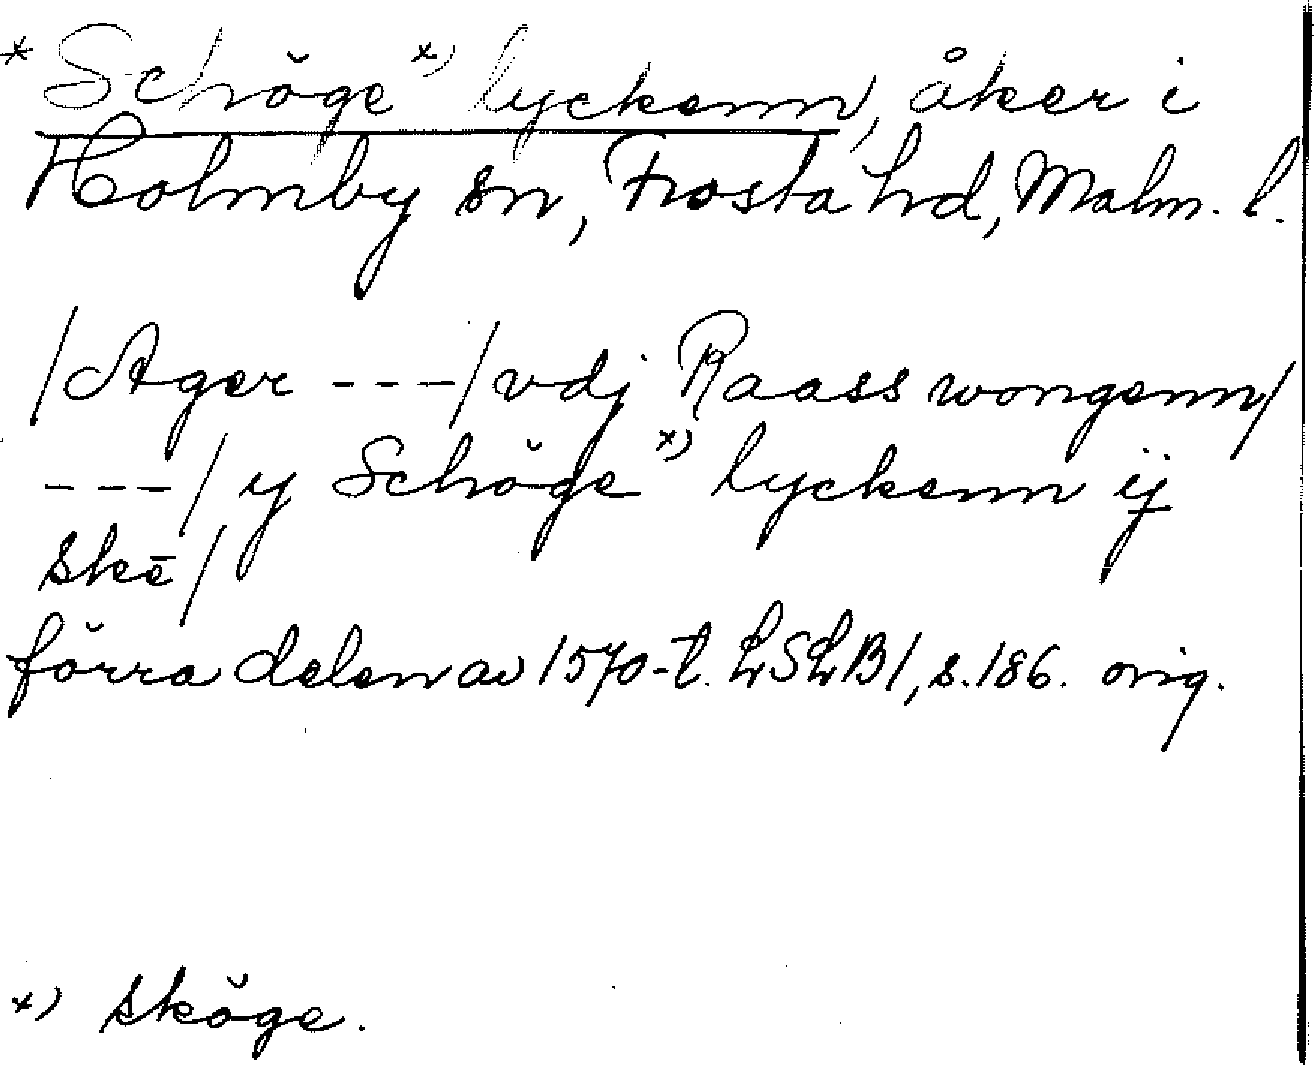 * Schöge x) lyckenn, åker i
Holmby sn, Frosta hd, Malm. l.
/Ager ---/ vdj Raass wongenn/
---/ y Schöge x) lyckenn ij
skē/
förra delen av 1570-t. LSLB1, s.186. orig.
x) sköge.